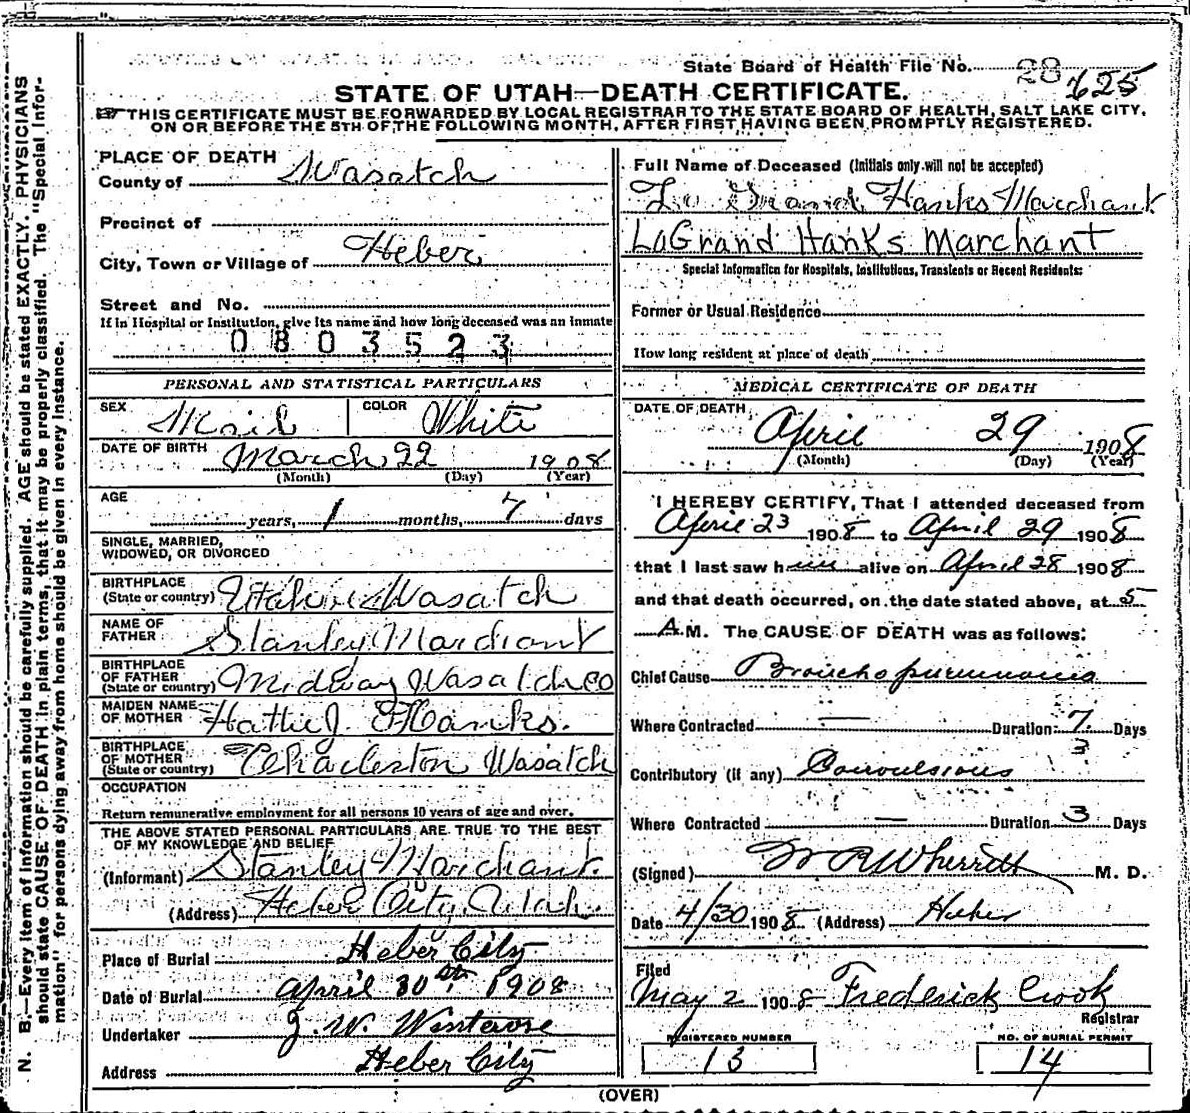 State Board of Health File No. 28 625
STATE OF UTAH—DEATH CERTIFICATE.
☞ THIS CERTIFICATE MUST BE FORWARDED BY LOCAL REGISTRAR TO THE STATE BOARD OF HEALTH, SALT LAKE CITY,
ON OR BEFORE THE 5TH OF THE FOLLOWING MONTH, AFTER FIRST HAVING BEEN PROMPTLY REGISTERED.
N. B.—Every item of information should be carefully supplied. AGE should be stated EXACTLY. PHYSICIANS
should state CAUSE OF DEATH in plain terms, that it may be properly classified. The "Special Infor-
mation" for persons dying away from home should be given in every instance.
PLACE OF DEATH
County of Wasatch
Precinct of
City, Town or Village of Heber
Street and No.
If in Hospital or Institution, give its name and how long deceased was an inmate
0803523
PERSONAL AND STATISTICAL PARTICULARS
SEX Mail COLOR White
DATE OF BIRTH March 22 1908
(Month) (Day) (Year)
AGE
years, 1 months, 7 days
SINGLE, MARRIED,
WIDOWED, OR DIVORCED
BIRTHPLACE
(State or country) Utah Wasatch
NAME OF
FATHER Stanley Marchant
BIRTHPLACE
OF FATHER
(State or country) Midway Wasatch co
MAIDEN NAME
OF MOTHER Hattie J Hanks.
BIRTHPLACE
OF MOTHER
(State or country) Charleston Wasatch
OCCUPATION
Return remunerative employment for all persons 10 years of age and over.
THE ABOVE STATED PERSONAL PARTICULARS ARE TRUE TO THE BEST
OF MY KNOWLEDGE AND BELIEF
(Informant) Stanley Marchant.
(Address) Heber City, Utah.
Place of Burial Heber City
Date of Burial April 30th. 1908
Undertaker J. W. Winterose
Address Heber City
Full Name of Deceased (Initials only will not be accepted)
Hanks Marchant
LaGrand Hanks Marchant
Special Information for Hospitals, Institutions, Transients or Recent Residents:
Former or Usual Residence
How long resident at place of death
MEDICAL CERTIFICATE OF DEATH
DATE OF DEATH
April 29 1908
(Month) (Day) (Year)
I HEREBY CERTIFY, That I attended deceased from
April 23 1908 to April 29 1908
that I last saw him alive on April 28 1908
and that death occurred, on the date stated above, at 5
A.M. The CAUSE OF DEATH was as follows:
Chief Cause Broncho pneumonia
Where Contracted — Duration 7 Days
3
Contributory (if any) Convulsions
Where Contracted — Duration 3 Days
(Signed) W R Wherritt M. D.
Date 4/30 1908 (Address) Heber
Filed
May 2 1908 Frederick Crook
Registrar
REGISTERED NUMBER
13
NO. OF BURIAL PERMIT
14
(OVER)